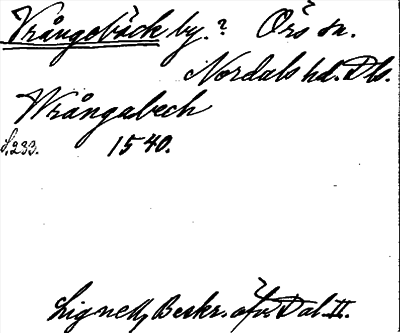 Vrångebäck by.? Örs sn.
Nordals hd. Dls.
Wrångabech
S. 233. 1540.
Lignell, Beskr. öfver Dal. II.